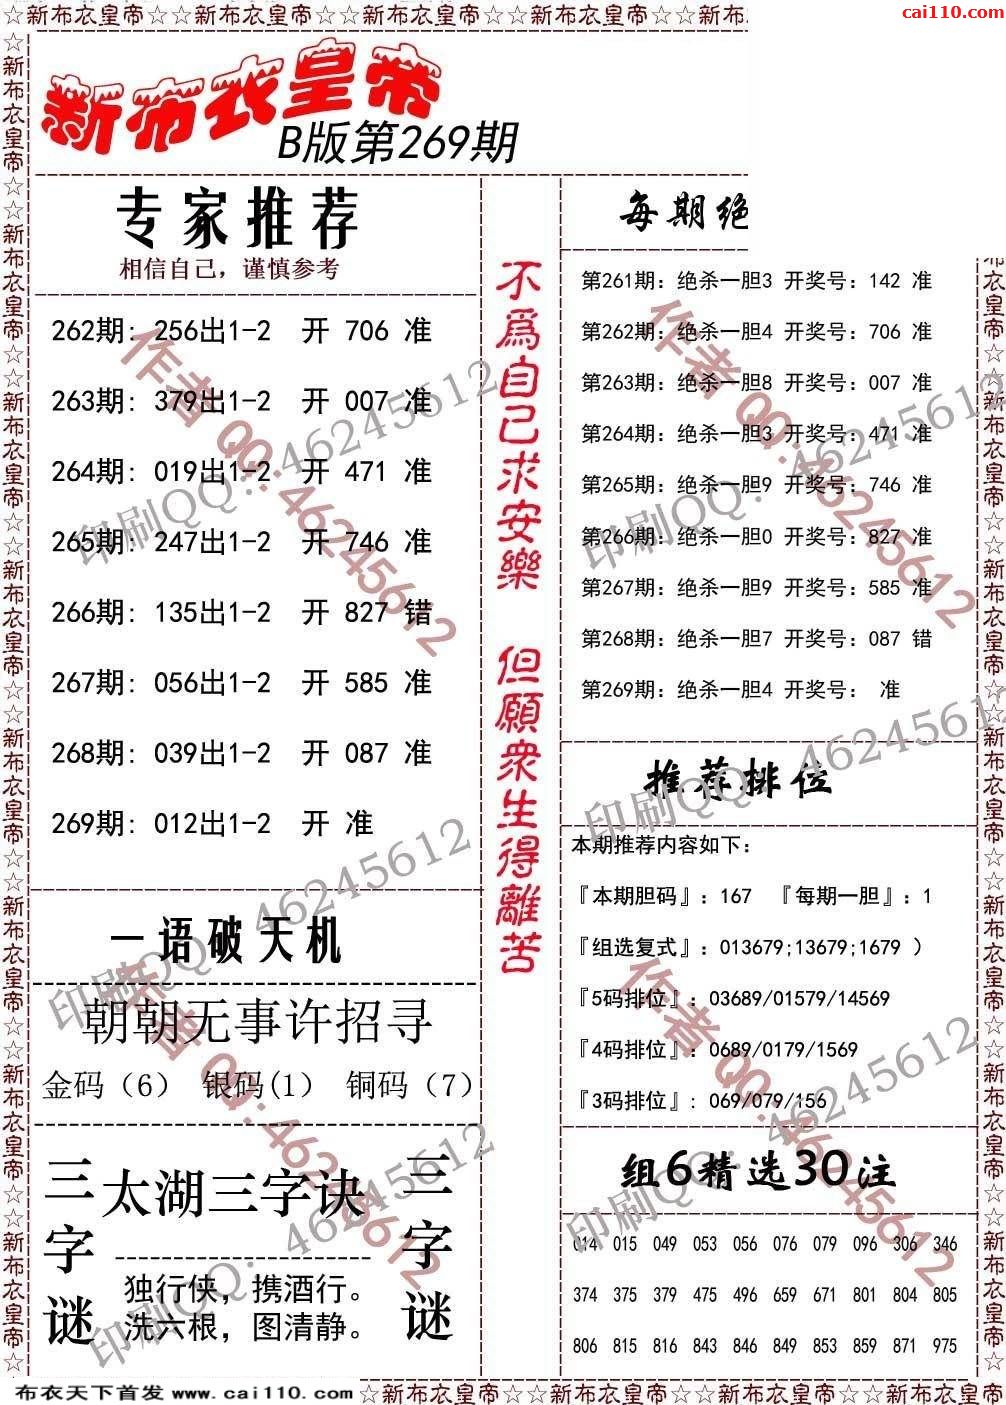 ☆新布衣皇帝☆☆新布衣皇帝☆☆新布衣皇帝☆☆新布衣皇帝☆☆新布
cai110.com
新布衣皇帝
B版第269期
专家推荐
相信自己，谨慎参考
262期: 256出1-2 开 706 准
263期: 379出1-2 开 007 准
264期: 019出1-2 开 471 准
265期: 247出1-2 开 746 准
266期: 135出1-2 开 827 错
267期: 056出1-2 开 585 准
268期: 039出1-2 开 087 准
269期: 012出1-2 开 准
一语破天机
朝朝无事许招寻
金码（6） 银码(1） 铜码（7）
三字谜
太湖三字诀
独行侠，携酒行。
洗六根，图清静。
三字谜
不為自己求安樂 但願衆生得離苦
每期绝
第261期: 绝杀一胆3 开奖号: 142 准
第262期: 绝杀一胆4 开奖号: 706 准
第263期: 绝杀一胆8 开奖号: 007 准
第264期: 绝杀一胆3 开奖号: 471 准
第265期: 绝杀一胆9 开奖号: 746 准
第266期: 绝杀一胆0 开奖号: 827 准
第267期: 绝杀一胆9 开奖号: 585 准
第268期: 绝杀一胆7 开奖号: 087 错
第269期: 绝杀一胆4 开奖号: 准
推荐排位
本期推荐内容如下:
『本期胆码』: 167 『每期一胆』: 1
『组选复式』: 013679;13679;1679 ）
『5码排位』: 03689/01579/14569
『4码排位』: 0689/0179/1569
『3码排位』: 069/079/156
组6精选30注
014 015 049 053 056 076 079 096 306 346
374 375 379 475 496 659 671 801 804 805
806 815 816 843 846 849 853 859 871 975
作者 QQ:46245612
印刷QQ: 46245612
作者 QQ:46245612
印刷QQ: 46245612
印刷QQ: 46245612
印刷QQ: 46245612
作者 QQ:46245612
作者 QQ:46245612
印刷QQ: 46245612
印刷QQ: 46245612
☆新布衣皇帝☆☆新布衣皇帝☆☆新布衣皇帝☆☆新布衣皇帝☆☆新布衣皇帝☆☆新布衣皇帝☆☆新布衣皇帝☆☆新布衣皇帝☆
布衣皇帝☆☆新布衣皇帝☆☆新布衣皇帝☆☆新布衣皇帝☆☆新布衣皇帝☆☆新布衣皇帝☆☆新布衣皇帝☆
布衣天下首发 www.cai110.com
☆新布衣皇帝☆☆新布衣皇帝☆☆新布衣皇帝☆☆新布衣皇帝☆